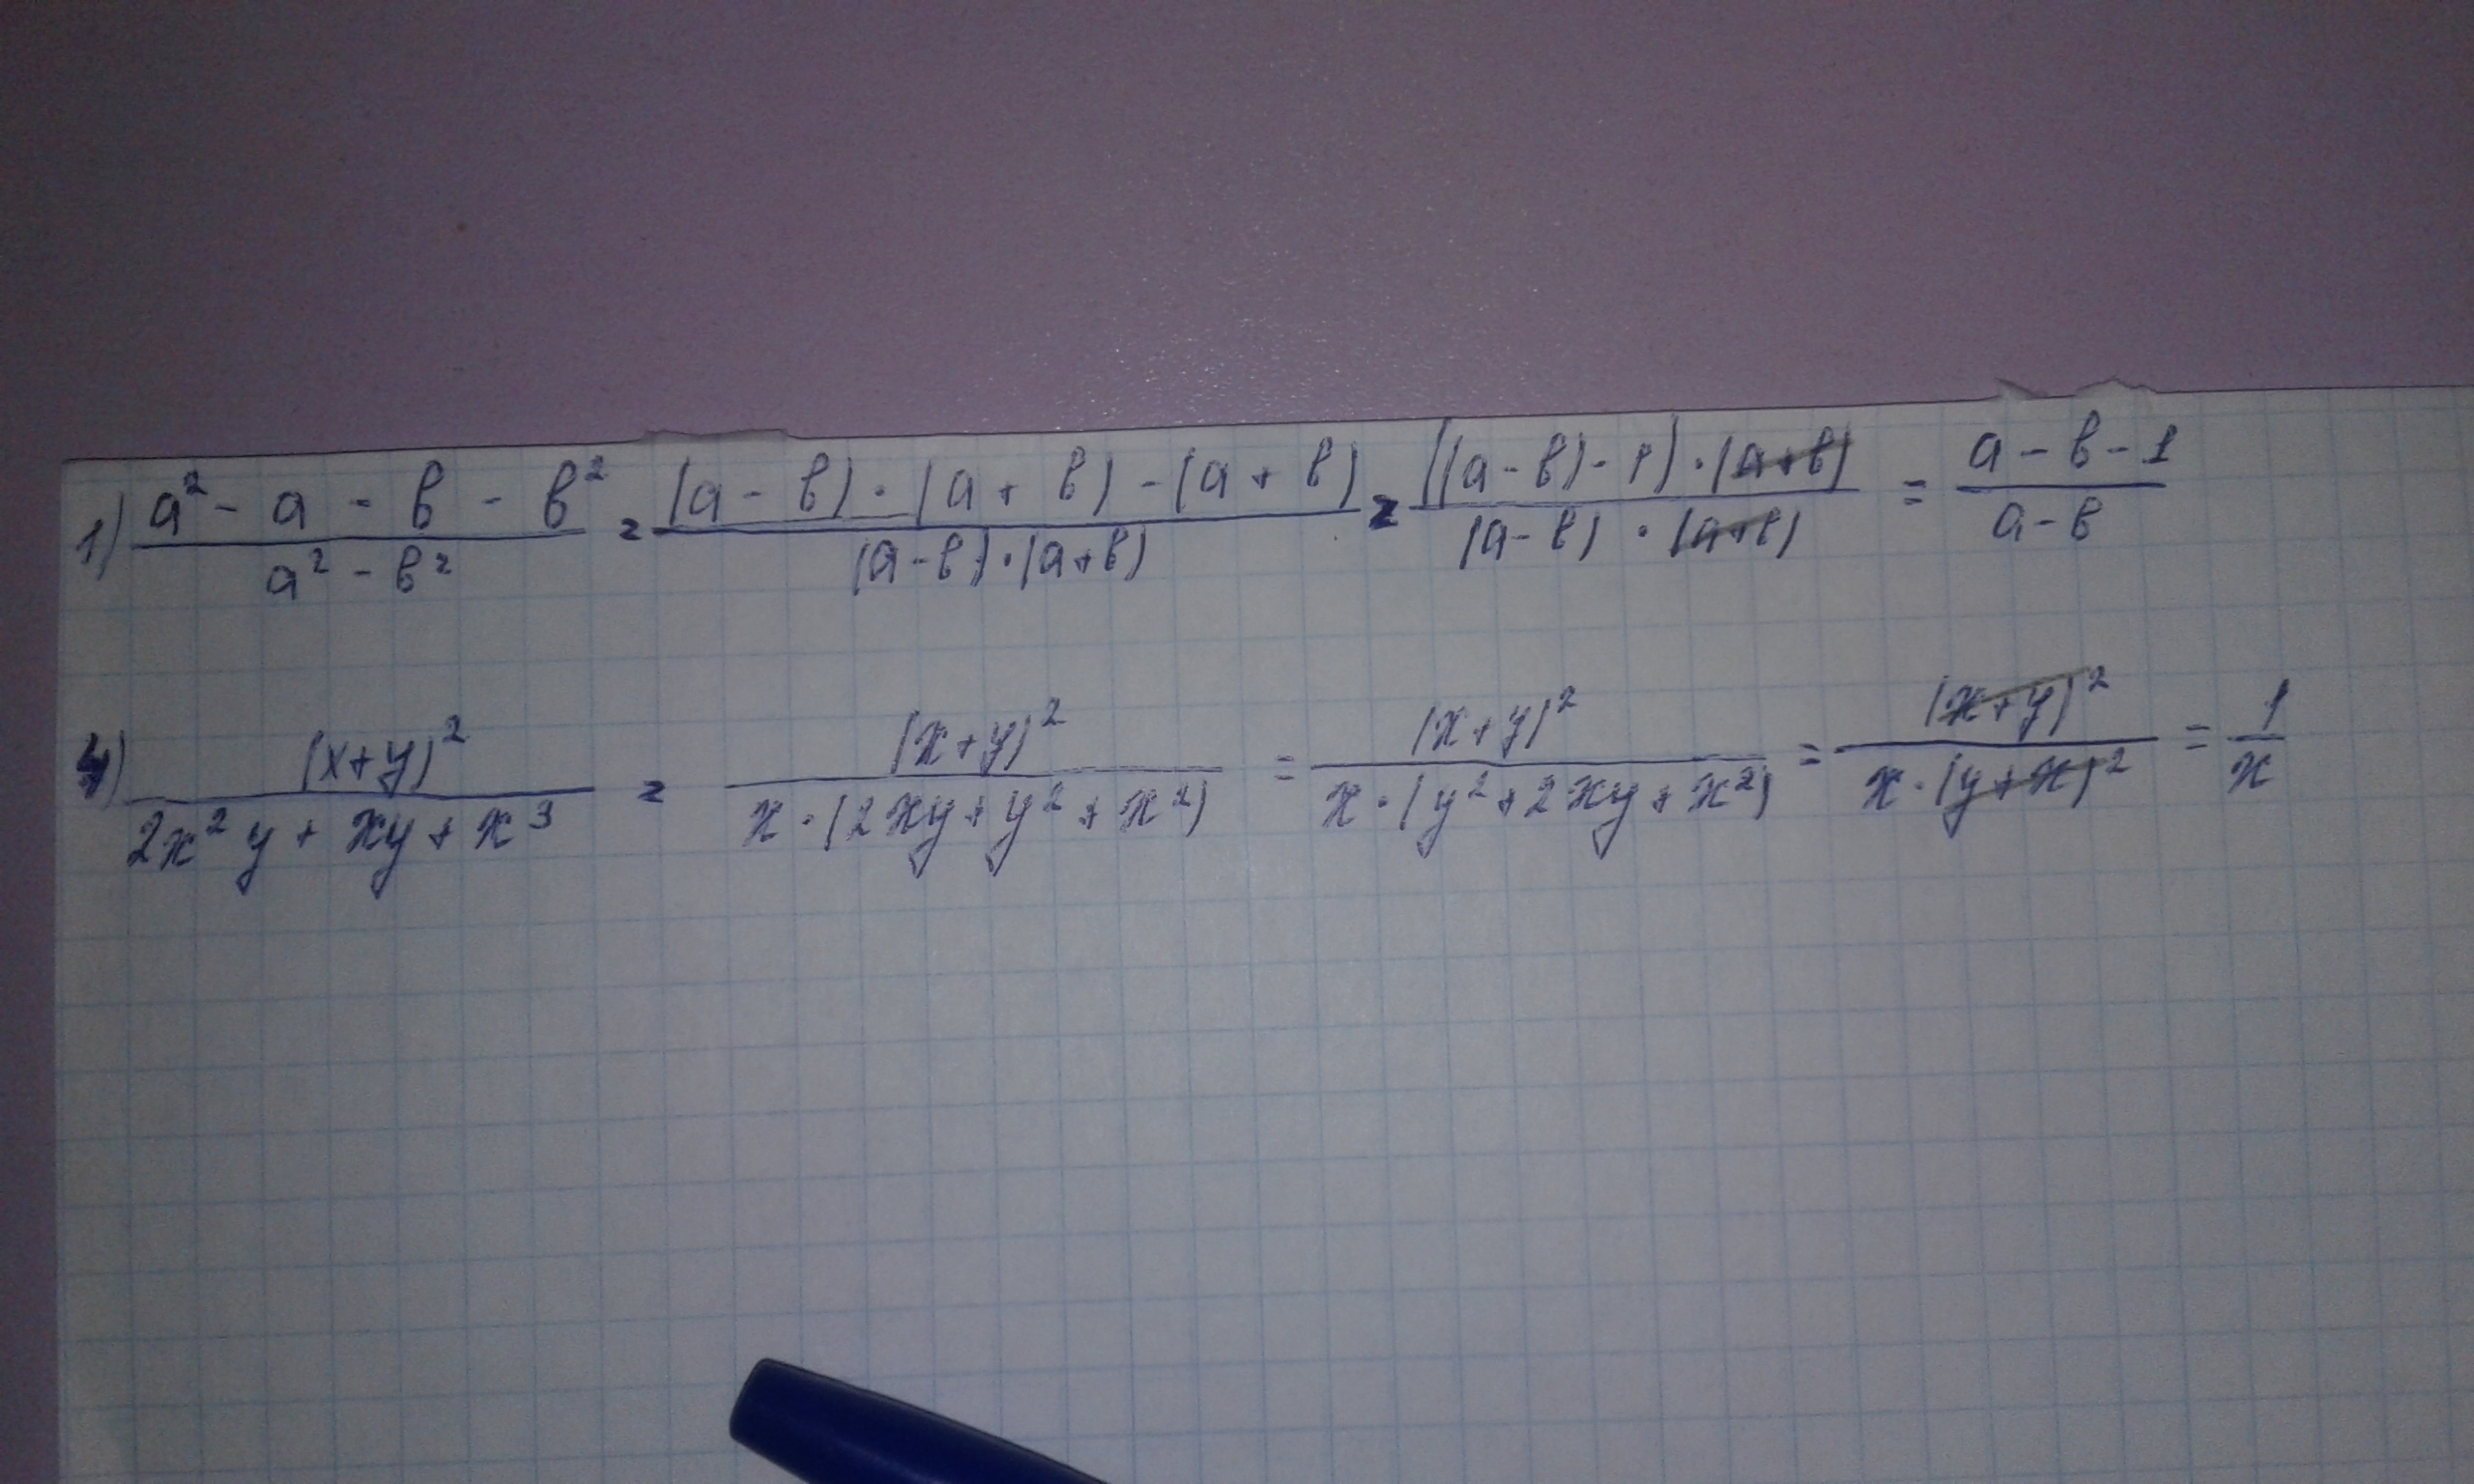 1) (a² - a - b - b²)/(a² - b²) = ((a - b) · (a + b) - (a + b))/((a - b) · (a + b)) = (((a - b) - 1) · (a + b))/((a - b) · (a + b)) = (a - b - 1)/(a - b)
4) (x + y)²/(2x²y + xy + x³) = (x + y)²/(x · (2xy + y² + x²)) = (x + y)²/(x · (y² + 2xy + x²)) = (x + y)²/(x · (y + x)²) = 1/x